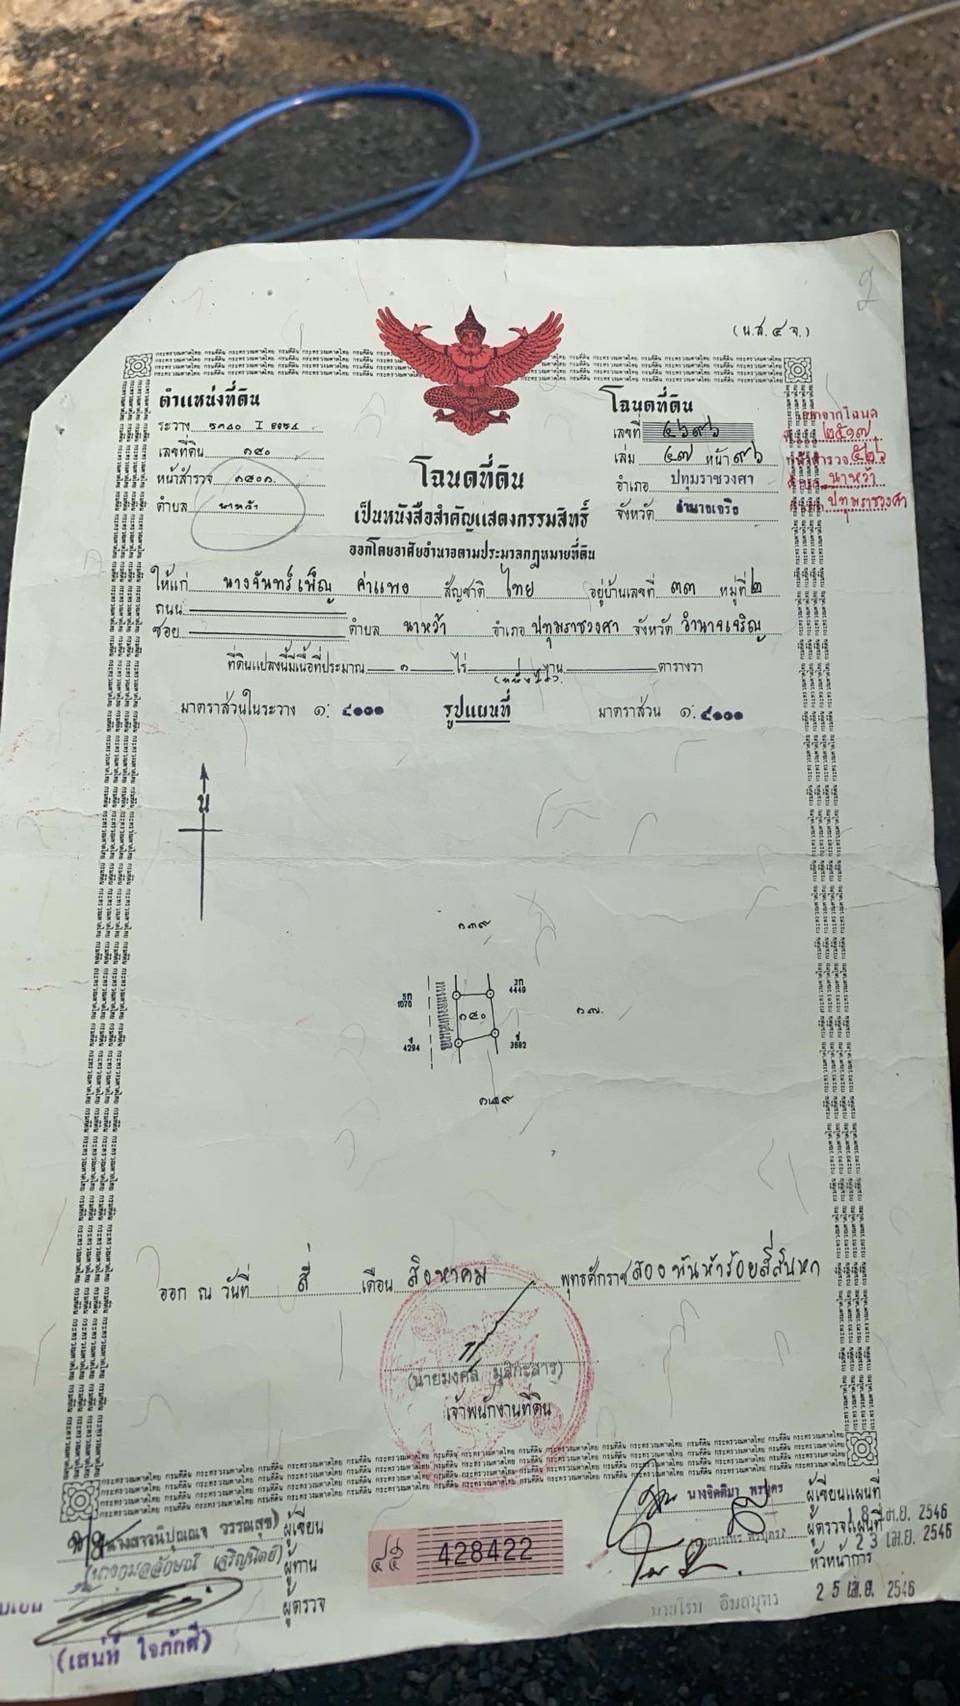 (น.ส.๔ จ.)
ตำแหน่งที่ดิน
ระวาง ๕๙๔๐ I
เลขที่ดิน ๑๔๐
หน้าสำรวจ ๑๔๐๑
ตำบล นาหว้า
โฉนดที่ดิน
เลขที่ ๔๖๙๖
เล่ม ๔๗ หน้า ๙๖
อำเภอ ปทุมราชวงศา
จังหวัด อำนาจเจริญ
๒๕๑๗
๕๒๖
นาหว้า
ปทุมราชวงศา
โฉนดที่ดิน
เป็นหนังสือสำคัญแสดงกรรมสิทธิ์
ออกโดยอาศัยอำนาจตามประมวลกฎหมายที่ดิน
ให้แก่ นางจันทร์เพ็ญ คำแพง สัญชาติ ไทย อยู่บ้านเลขที่ ๓๓ หมู่ที่ ๒
ถนน
ซอย ตำบล นาหว้า อำเภอ ปทุมราชวงศา จังหวัด อำนาจเจริญ
ที่ดินแปลงนี้มีเนื้อที่ประมาณ ๑ ไร่ งาน ตารางวา
(หนึ่งไร่)
มาตราส่วนในระวาง ๑: ๔๐๐๐ รูปแผนที่ มาตราส่วน ๑: ๔๐๐๐
น
๑๓๙
3ท 1070
3ท 4449
๑๔๐
๑๗
4294
3882
ออก ณ วันที่ สี่ เดือน สิงหาคม พุทธศักราช สองพันห้าร้อยสี่สิบหก
(นายมงคล มูสิกะสาร)
เจ้าพนักงานที่ดิน
ผู้เขียน
ผู้ทาน
ผู้ตรวจ
(เสน่ห์ ใจภักดี)
428422
นางจิตติมา ผู้เขียนแผนที่
ผู้ตรวจแผนที่ 18 เม.ย. 2546
หัวหน้าการ 23 เม.ย. 2546
นายโรม อิ่มสมุทร 25 เม.ย. 2546